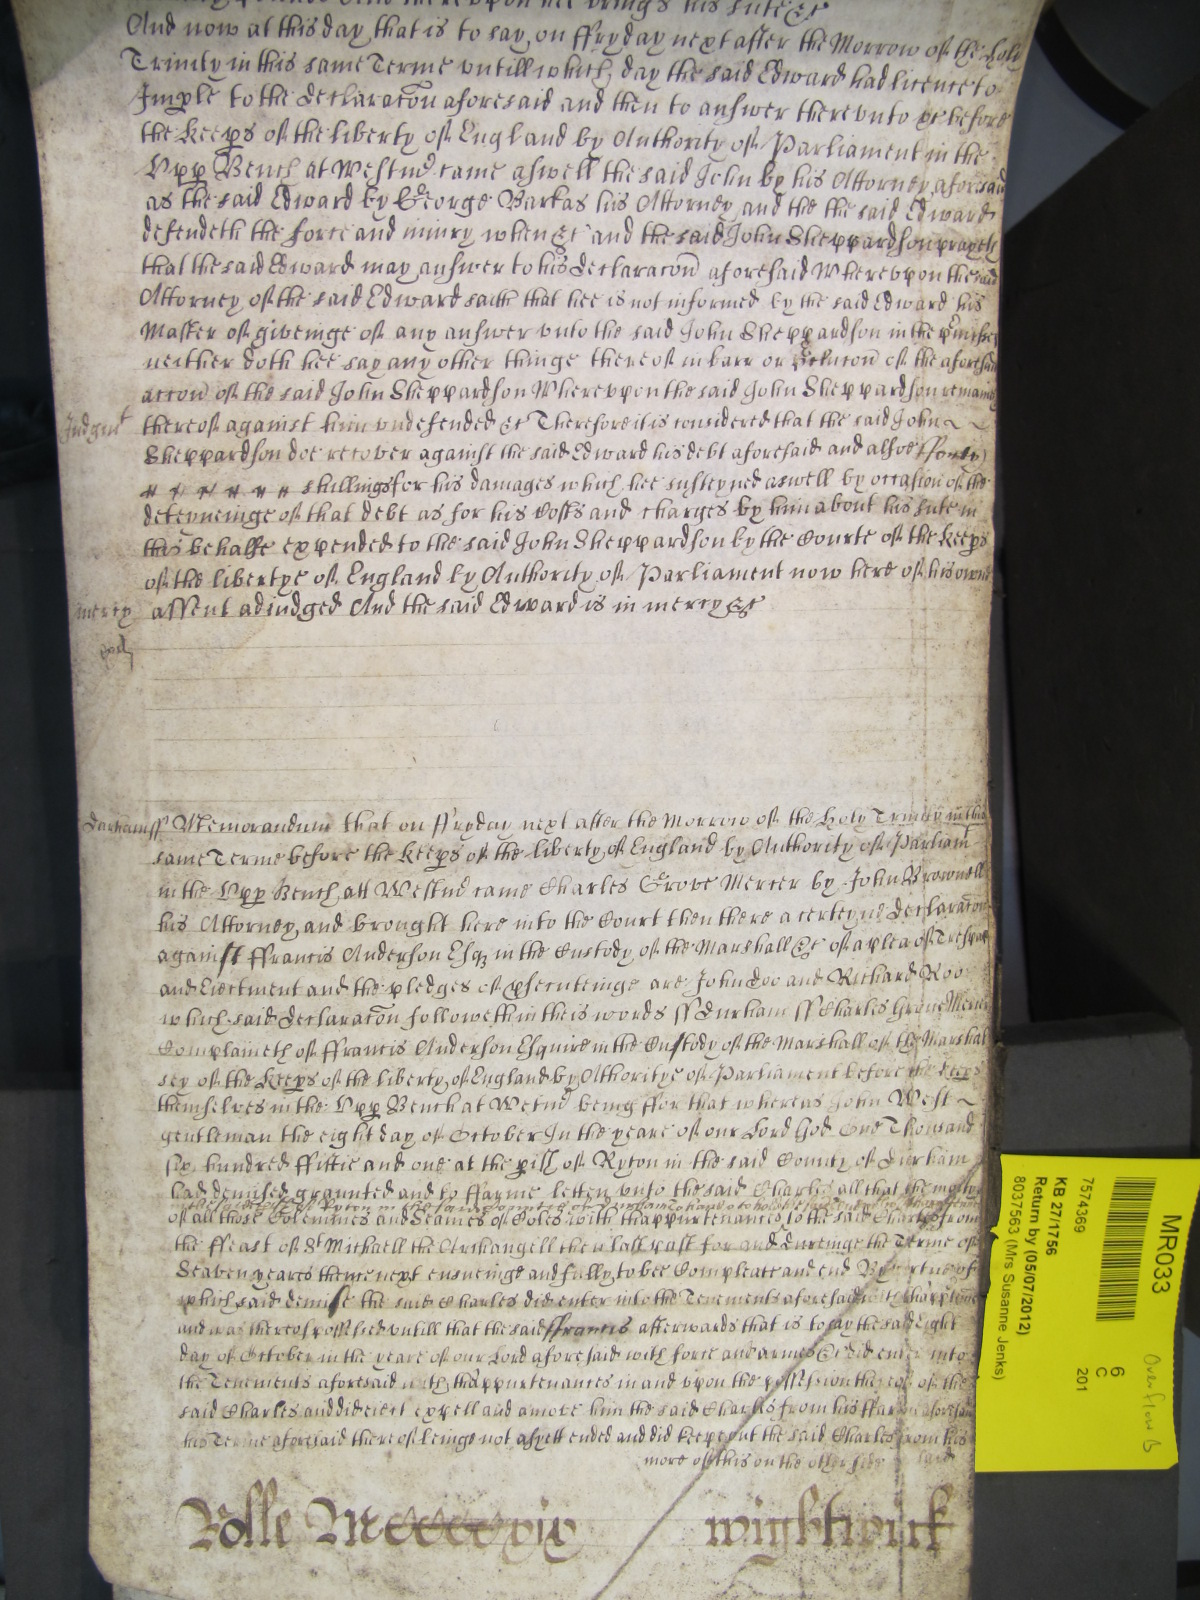 hee brings his sute &c
And now at this day that is to say on ffryday next after the Morrow of the holy
Trinity in this same Terme untill which day the said Edward had licence to
Imple to the declaracon aforesaid and then to answer thereunto &c before
the Keeps of the liberty of England by Authority of Parliament in the
Upp Bench at Westmd came aswell the said John by his Attorney aforesaid
as the said Edward by George Barkas his Attorney and the the said Edward
defendeth the force and iniury when &c and the said John Sheppardson prayeth
that the said Edward may answer to his declaracon aforesaid Whereupon the said
Attorney of the said Edward saith that hee is not informed by the said Edward his
Master of giveinge of any answer unto the said John Sheppardson in the
neither doth hee say any other thinge thereof in barr or of the aforesaid
accon of the said John Sheppardson Whereupon the said John Sheppardson remaines
Judgmt thereof against him undefended &c Therefore it is considered that the said John
Sheppardson doe recover against the said Edward his debt aforesaid and alsoe fforty
shillings for his damages which hee susteyned aswell by occasion of the
deteyneinge of that debt as for his Costs and charges by him about his sute in
this behalfe expended to the said John Sheppardson by the Courte of the Keeps
of the libertye of England by Authority of Parliament now here of his owne
mercy assent adiudged And the said Edward is in mercy &c
Durham ss Memorandum that on ffryday next after the Morrow of the Holy Trinity in this
same Terme before the Keeps of the liberty of England by Authority of Parliam
in the Upp Bench att Westmd came Charles Grove Mercer by John Brownell
his Attorney and brought here into the Court then there a certeyne declaracon
against ffrancis Anderson Esq in the Custody of the Marshall &c of a plea of Trespas
and Eiectment and the pledges of psecuteinge are John Doo and Richard Roo
which said declaracon followeth in theis words ss Durham ss Charles Grove Mercer
Complaineth of ffrancis Anderson Esquire in the Custody of the Marshall of the Marshal
sey of the Keeps of the liberty of England by Authoritye of Parliament before the Keeps
themselves in the Upp Bench at Wetmd being ffor that whereas John West
gentleman the eight day of October In the yeare of our Lord God One Thousand
six hundred ffiftie and one at the pish of Ryton in the said County of Durham
had demised graunted and to ffarme letten unto the said Charles all that the moyty
of all those Colemines and Seames of Coles with thappurtenances to the said Charles from
the ffeast of St Michaell the Archangell then last past for and dureinge the Terme of
Seaven yeares thence next ensueinge and fully to bee Compleate and end By vertue of
which said demise the said Charles did enter into the Tenements aforesaid with thapptences
and was thereof possessed untill that the said ffrancis afterwards that is to say the said Eight
day of October in the yeare of our Lord aforesaid with force and armes &c did enter into
the Tenements aforesaid with thappurtenances in and upon the possession thereof of the
said Charles and did eiect expell and amove him the said Charles from his ffarme aforesaid
his Terme aforesaid thereof beinge not as yett ended and did keepe out the said Charles from his
more of this on the other side said
Rolle Mccccxix wightwick
MR033
7574369
KB 27/1756
Return by (05/07/2012)
8037563 (Mrs Susanne Jenks)
6
C
201